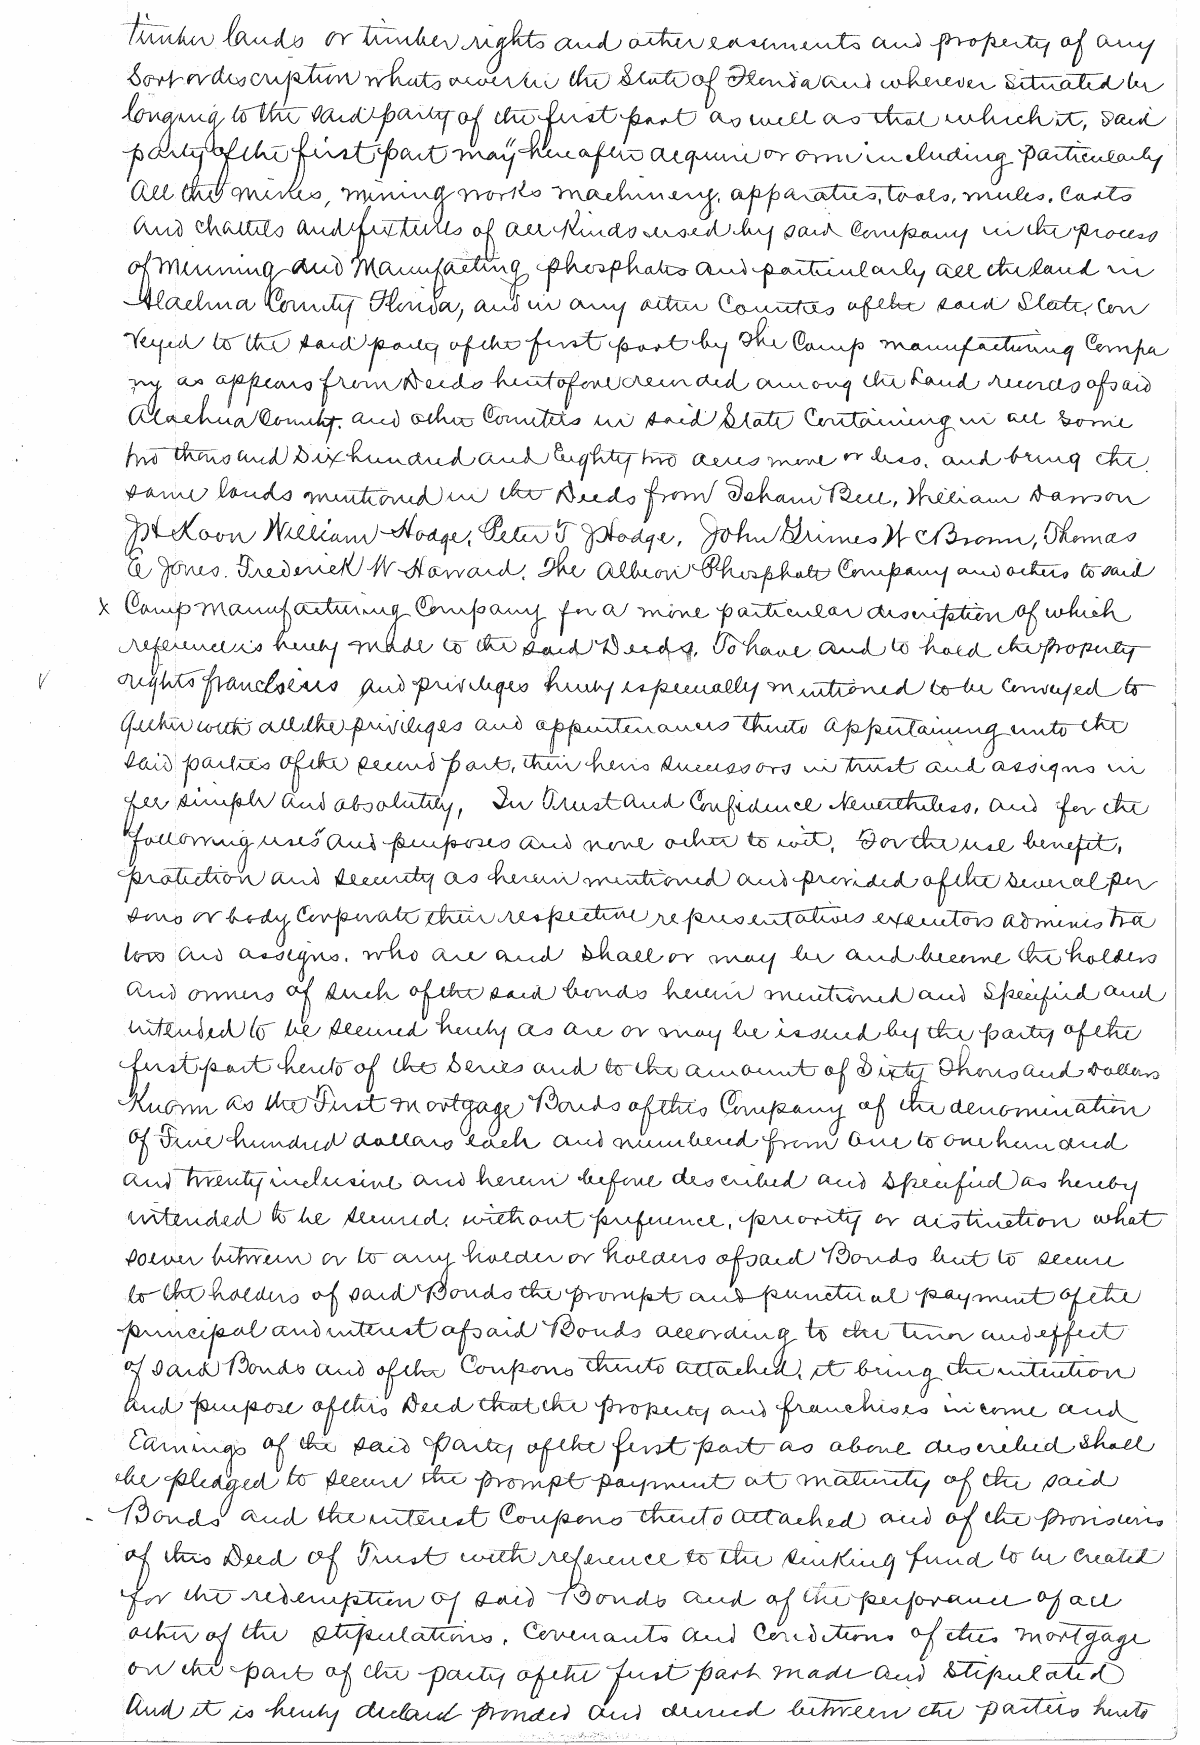 timber lands or timber rights and other easements and property of any
Sort or description whatsoever in the State of Florida and wherever situated be
longing to the said party of the first part as well as that which it, said
party of the first part may hereafter acquire or own including particularly
all the mines, mining works machinery, apparaties, tools, mules, Carts
and chattels and fixtures of all Kinds used by said Company in the process
of Minning and Manufacting phosphates and particularly all the land in
Alachua County Florida, and in any other Counties of the said State, Con
veyed to the said party of the first part by The Camp manufacturing Compa
ny as appears from Deeds heretofore recorded among the Land records of said
Alachua County. and other Counties in said State Containing in all Some
two thousand Six hundred and Eighty two acres more or less. and being the
same lands mentioned in the Deeds from Isham Bell, William Dawson
J H Koon William Hodge, Peter T Hodge, John Grimes W C Brown, Thomas
E Jones. Frederick W Howard. The Albion Phosphate Company and others to said
x Camp Manufacturing Company for a more particular discription of which
reference is hereby made to the said Deeds. To have and to hold the property
rights franchises and privileges hereby especially mentioned to be Conveyed to
gether with all the privileges and appurtenances thereto appertaining unto the
said parties of the second part, their heirs successors in trust and assigns in
fee simple and absolutely, In Trust and Confidence Nevertheless, and for the
following uses and purposes and none other to wit, For the use benefit,
protection and security as herein mentioned and provided of the several per
sons or body Corporate their respective representatives executors administra
tors and assigns. who are and shall or may be and become the holders
and owners of such of the said bonds herein mentioned and Specified and
intended to be secured hereby as are or may be issued by the party of the
first part hereto of the Series and to the amount of Sixty Thousand Dollars
Known as the First mortgage Bonds of this Company of the denomination
of Five hundred dollars each and numbered from One to one hundred
and twenty inclusive and herein before described and Specified as hereby
intended to be secured. without preference, priority or distinction what
soever between or to any holder or holders of said Bonds but to secure
to the holders of said Bonds the prompt and punctual payment of the
principal and interest of said Bonds according to the tenor and effect
of said Bonds and of the Coupons thereto attached, it being the intention
and purpose of this Deed that the property and franchises income and
Earnings of the said Party of the first part as above described shall
be pledged to secure the prompt payment at maturity of the said
Bonds and the interest Coupons thereto attached and of the provisions
of this Deed of Trust with reference to the sinking fund to be created
for the redemption of said Bonds and of the perforance of all
other of the stipulations, Covenants and Conditions of this mortgage
on the part of the party of the first part made and stipulated
And it is hereby declard provided and between the parties hereto